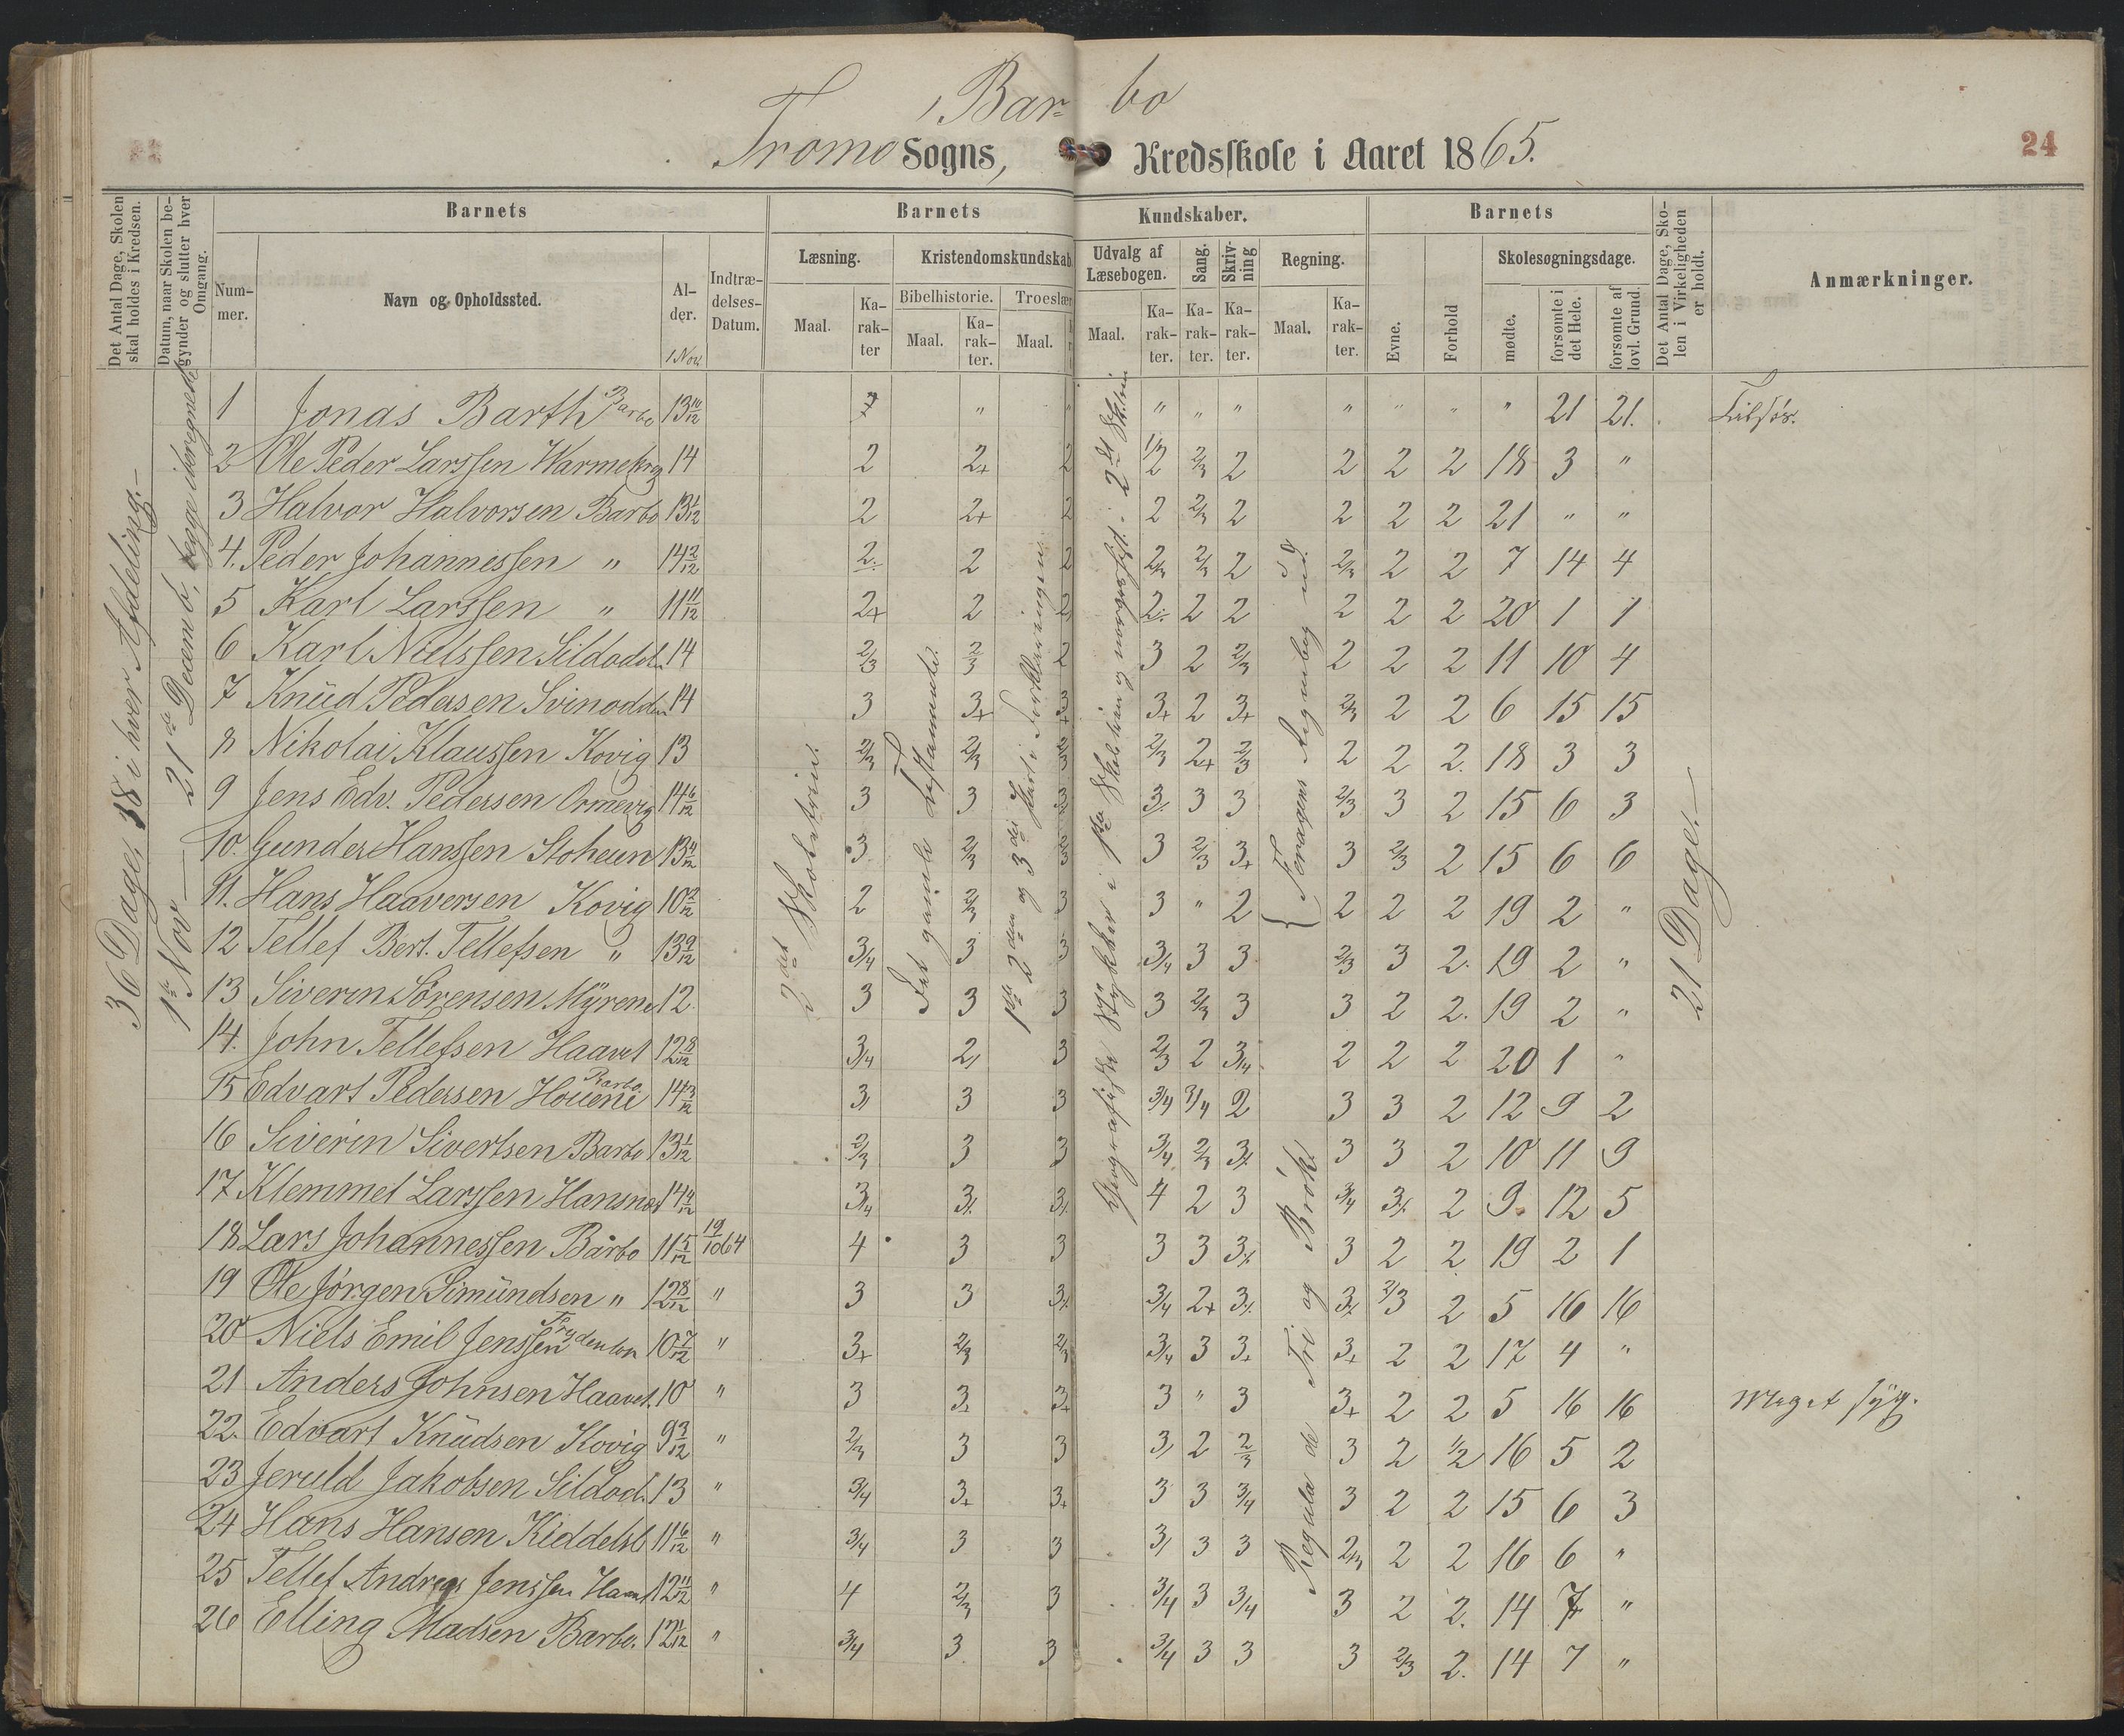 Barbo
Tromø Sogns, Kredsskole i Aaret 1865.
24
Det Antal Dage, Skolen skal holdes i Kredsen.
Datum, naar Skolen begynder og slutter hver Omgang.
Barnets
Barnets
Kundskaber.
Barnets
Det Antal Dage, Skolen i Virkeligheden er holdt.
Anmærkninger.
Nummer.
Navn og Opholdssted.
Alder.
1 Nov.
Indtrædelses-Datum.
Læsning.
Kristendomskundskab
Udvalg af Læsebogen.
Sang.
Skrivning
Regning.
Evne.
Forhold
Skolesøgningsdage.
Maal.
Karakter
Bibelhistorie.
Troeslær
Maal.
Karakter.
Maal.
Maal.
Karakter.
Karakter.
Karakter.
Maal.
Karakter.
mødte.
forsømte i det Hele.
forsømte af lovl. Grund.
36 Dage, 18 i hver Afdeling.
1ste Nov — 21de Decemb, begge iberegnede
2det Skoletrin.
Det gamle Testamente.
1ste 2den og 3die Part i Forklaringen
21 Dage.
Regula de Tri og Brøk.
1 Jonas Barth Barbo 13 10/12 " " " " " " " " 21 21. 
2 Ole Peder Larssen 14 2 2+ 2 1/2 2/3 2 2 2 2 18 3 "
3 Halvor Halvorsen Barbo 13 1/12 2 2+ 2 2 2/3 2 2 2 2 21 " "
4. Peder Johannessen " 14 2/12 2 2 2 2/3 2/3 2 2/3 2 2 7 14 4
5 Karl Larssen " 11 11/12 2+ 2 2 2 2 2 2 2 2 20 1 1
6 Karl Nielssen Sildodd. 14 2/3 2/3 2 3 2 2/3 2 2 2 11 10 4
7 Knüd Pedasen Svinodden 14 3 3+ 3+ 3+ 2 3+ 2/3 2 2 6 15 15
8 Nikolai Klaussen Kovig 13 2/3 2/3 2/3 2/3 2+ 2/3 2 2 2. 18 3 3
9 Jens Edv. Pedersen Ormevig 14 6/12 3 3 3 3 3 2/3 3 2 15 6 3
10. Gunder Hanssen 13 4/12 3 2/3 2/3 3 2/3 3+ 3 2/3 2 15 6 6
11. Hans Haaversen Kovig 10 2/12 2 2/3 3 3 " 2 2 2 2 19 2 "
12 Tellef Bert. Tellefsen " 13 9/12 3/4 3 3 3/4 3 3 2/3 3 2. 19 2 "
13 Siverin Sørensen Myrene 12 3 3 3 3 2/3 3 3 2 2. 19 2 "
14. John Tellefsen Haavet 12 8/12 3/4 2 3 2/3 2 3/4 2 2 2 20 1 "
15 Edvart Pedersen Barbo 14 3/12 3 3 3 3/4 3/4 2 3 3 2 12 9 2
16 Siverin Sivertsen Barbo 13 1/12 2/3 3 3 3/4 2/3 3 3 3 2 10 11 9
17 Klemmet Larssen 3/4 4 2 3 3/4 2 9. 12 5
18 Lars Johannessen Barbo 11 5/12 19/10 64 4 3 3 3 3 3 2 2 19 2 1
19 Ole Jørgen Simündsen " 12 8/12 " 3 3 3/4 2+ 2/3 2 5 16 16
20 Niels Emil Jenssen 10 7/12 " 3+ 2/3 2/3 3/4 3 3+ 3+ 2 2 17 4 "
21 Anders Johnsen Haavet. 10 " 3 3+ 3+ 3 " 3 3+ 2 2 5 16 16 Meget syg.
22. Edvart Knüdsen Kovig 9 3/12 " 2/3 3 3 3 2 2/3 3 2 1/2 16 5 2
23 Jeruld Jakobsen Sildod. 13 " 3/4 3+ 3+ 3 3 3/4 3 2 2 15 6 3
24 Hans Hansen 11 6/12 " 3/4 3 3 3 3 3 2/3 2 2 16 6 "
25 Tellef Andreas Jenssen 12 11/12 " 4 2/3 3 3/4 3 3/4 3 2 2. 14 7 "
26 Elling Madsen Barbo. 12 1/12 " 3/4 3 3 3/4 3 3 3 2/3 2. 14 7 "